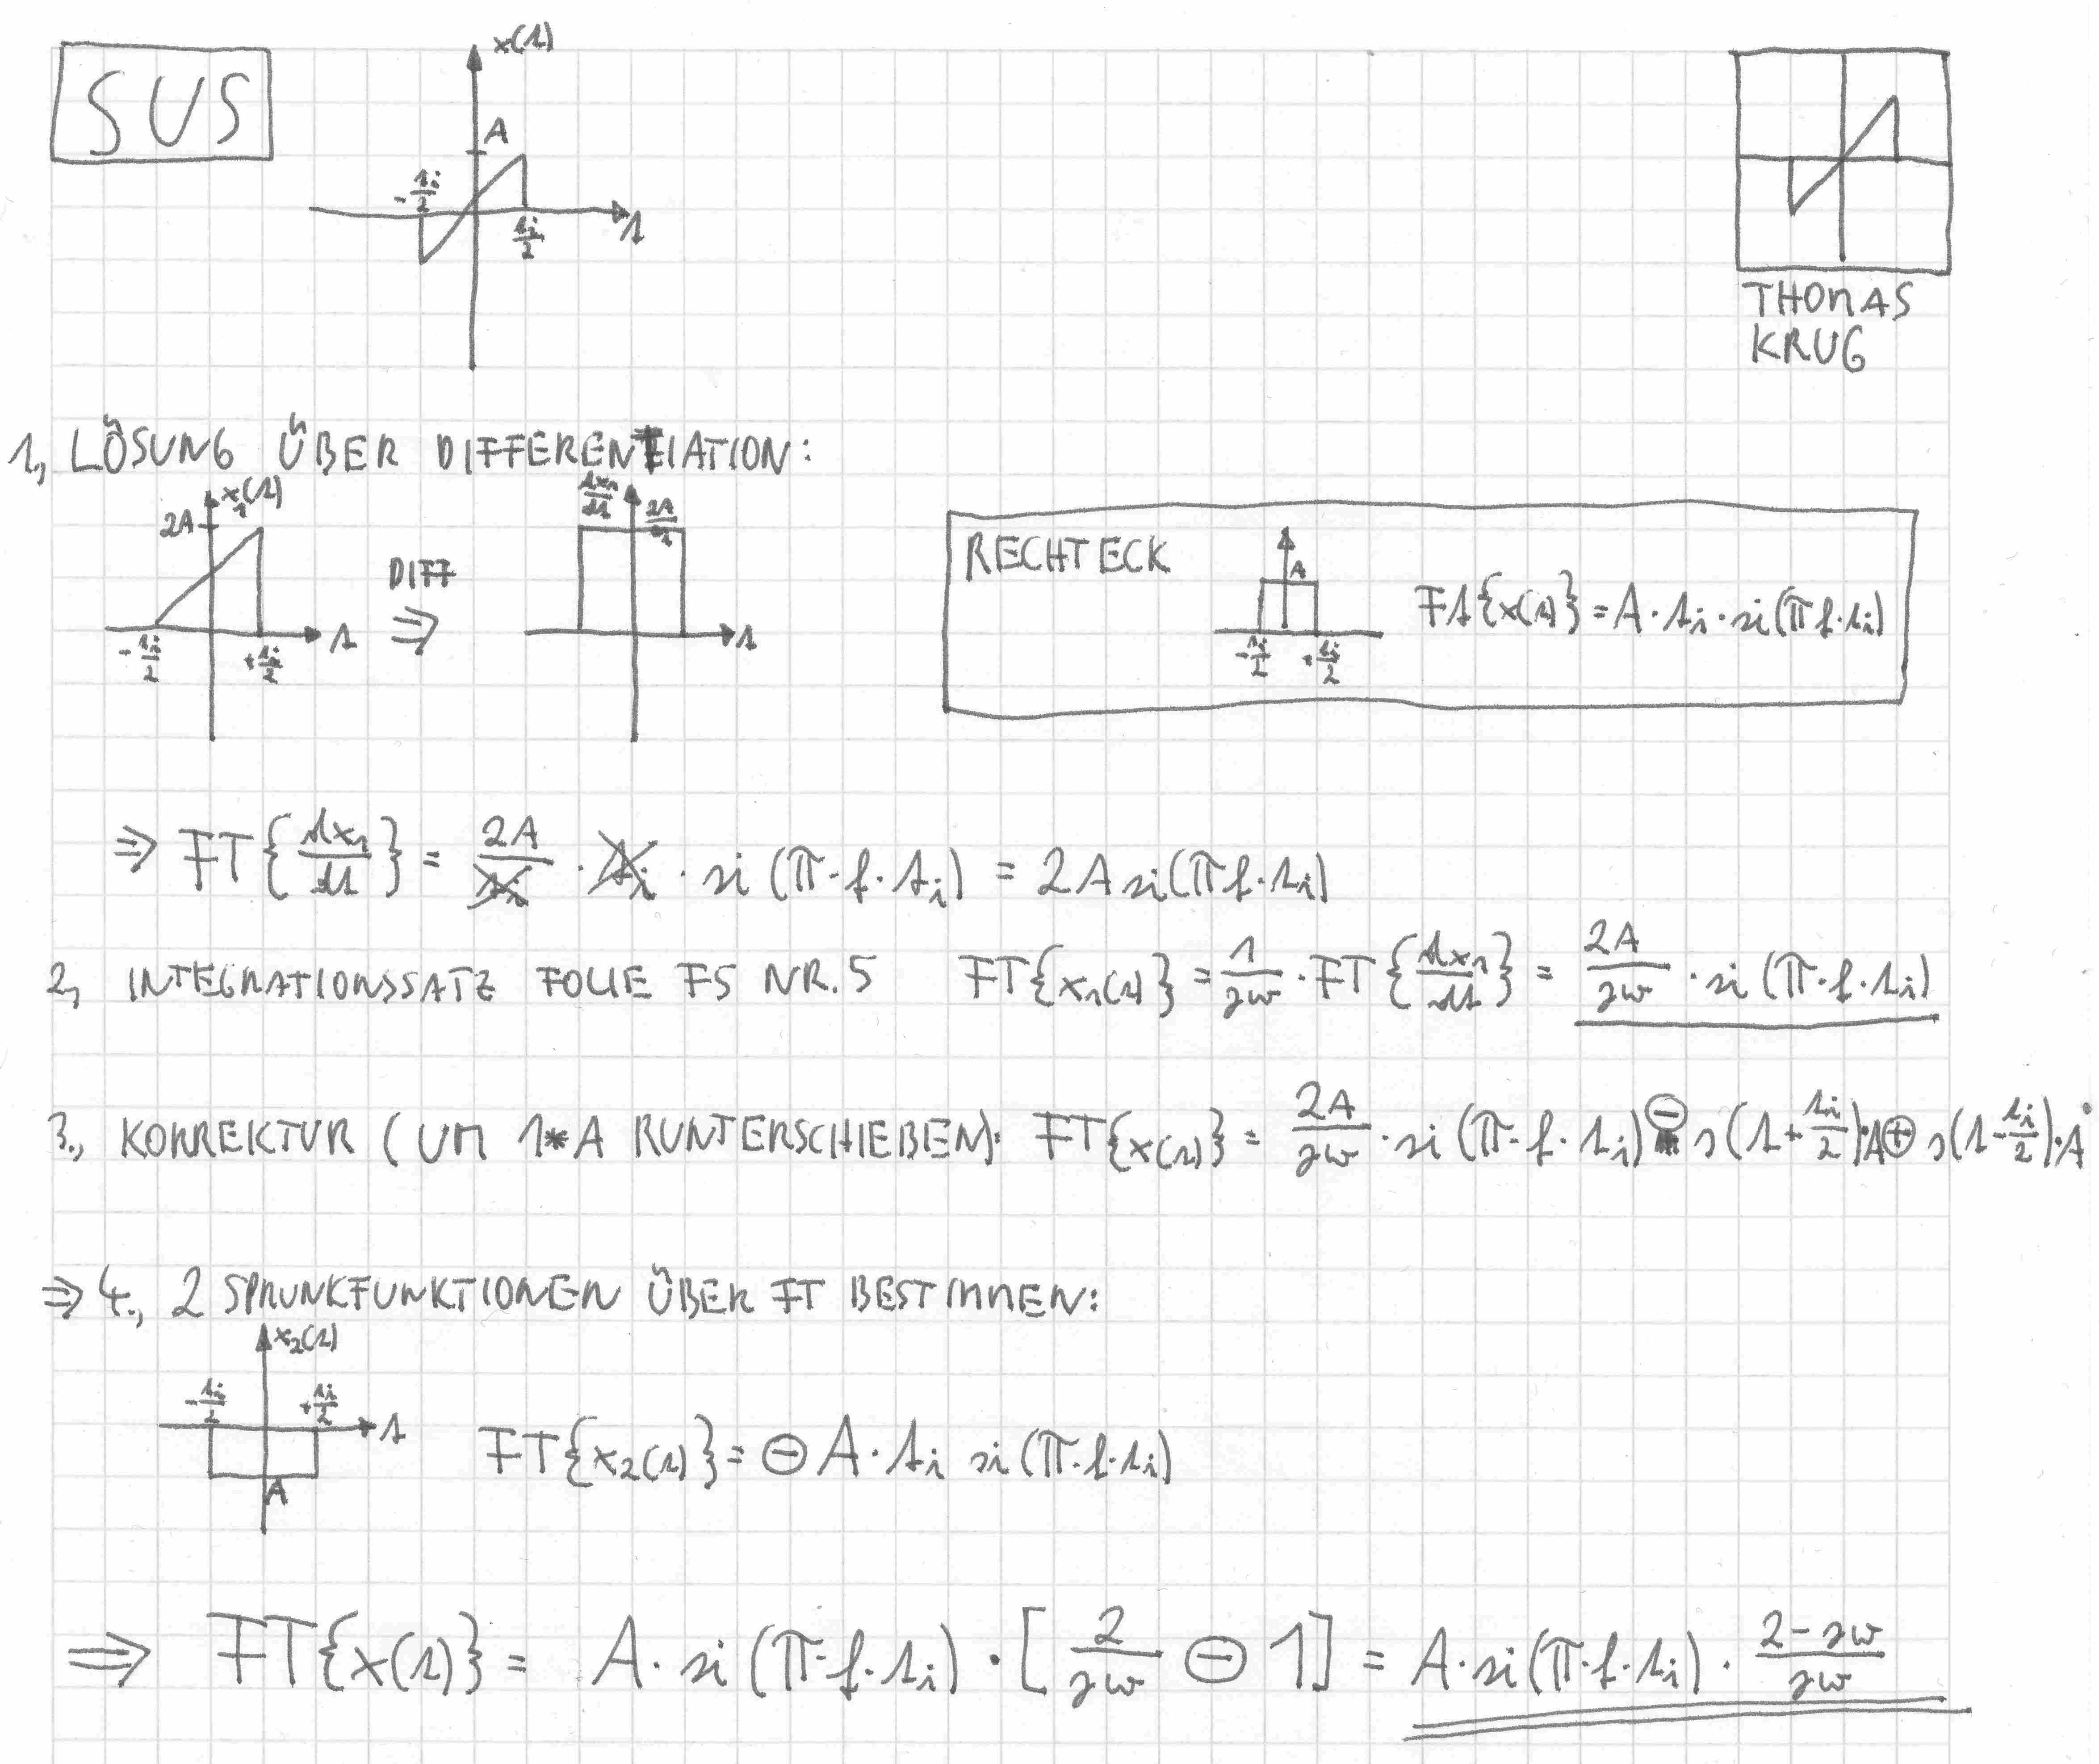 SUS
x(t)
A
-ti/2
ti/2
t
THOMAS
KRUG
1, LÖSUNG ÜBER DIFFERENTIATION:
x1(t)
2A
-ti/2
+ti/2
t
DIFF
⇒
dx1/dt
2A/ti
t
RECHTECK
A
-ti/2
+ti/2
FT{x(t)} = A·ti·si(πf·ti)
⇒ FT{dx1/dt} = 2A/ti · ti · si(π·f·ti) = 2A si(πf·ti)
2, INTEGRATIONSSATZ FOLIE F5 NR. 5 FT{x1(t)} = 1/jw · FT{dx1/dt} = 2A/jw · si(π·f·ti)
3., KORREKTUR (UM 1*A RUNTERSCHIEBEN): FT{x(t)} = 2A/jw · si(π·f·ti) ⊖ s(t+ti/2)·A ⊕ s(t-ti/2)·A
⇒ 4., 2 SPRUNKFUNKTIONEN ÜBER FT BESTIMMEN:
x2(t)
-ti/2
+ti/2
t
A
FT{x2(t)} = ⊖ A·ti si(π·f·ti)
⇒ FT{x(t)} = A·si(π·f·ti)·[2/jw ⊖ 1] = A·si(π·f·ti)·2-jw/jw